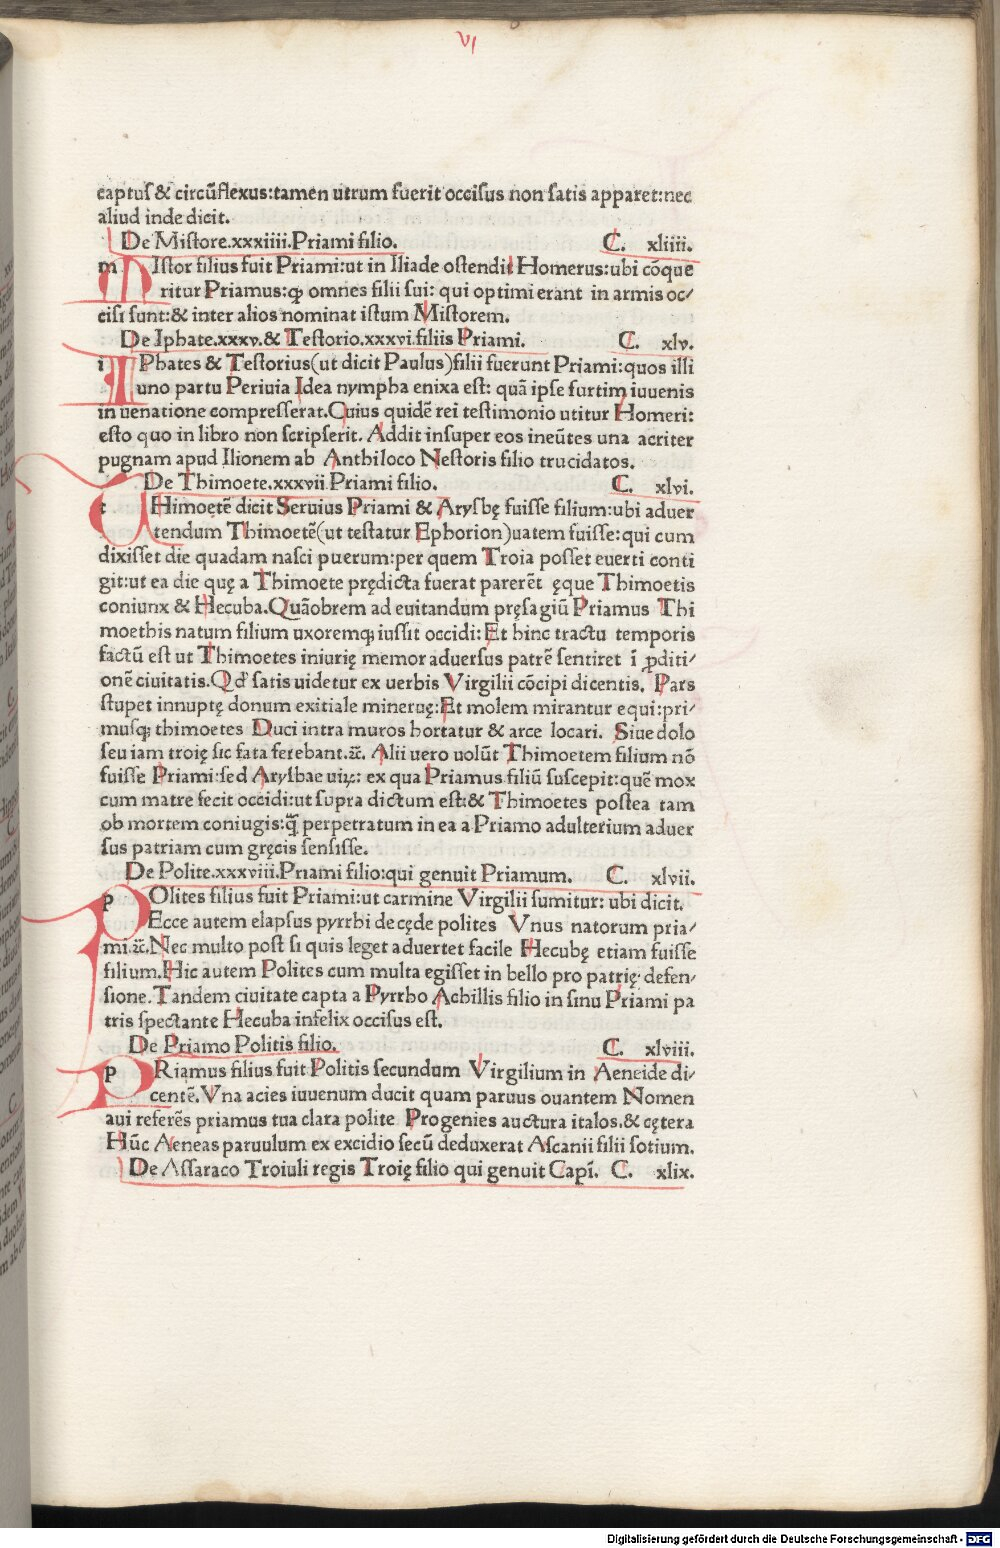 VI
captus & circūflexus:tamen utrum fuerit occisus non satis apparet:nec
aliud inde dicit.
De Mistore.xxxiiii.Priami filio. C. xliiii.
m MIstor filius fuit Priami:ut in Iliade ostendit Homerus:ubi cōque
ritur Priamus:ꝙ omnes filii sui: qui optimi erant in armis oc/
cisi sunt:& inter alios nominat istum Mistorem.
De Iphate.xxxv.& Testorio.xxxvi.filiis Priami. C. xlv.
i IPhates & Testorius(ut dicit Paulus)filii fuerunt Priami:quos illi
uno partu Periuia Idea nympha enixa est: quā ipse furtim iuuenis
in uenatione compresserat.Cuius quidē rei testimonio utitur Homeri:
esto quo in libro non scripserit. Addit insuper eos ineūtes una acriter
pugnam apud Ilionem ab Anthiloco Nestoris filio trucidatos.
De Thimoete.xxxvii.Priami filio. C. xlvi.
t THimoętē dicit Seruius Priami & Arysbę fuisse filium:ubi aduer
tendum Thimoetē(ut testatur Ephorion)uatem fuisse:qui cum
dixisset die quadam nasci puerum:per quem Troia posset euerti conti
git:ut ea die quę a Thimoete prędicta fuerat parerēt ęque Thimoetis
coniunx & Hecuba.Quāobrem ad euitandum pręsagiū Priamus Thi
moethis natum filium uxoremq; iussit occidi:Et hinc tractu temporis
factū est ut Thimoetes iniurię memor aduersus patrē sentiret ī ꝓditi/
onē ciuitatis.Qd' satis uidetur ex uerbis Virgilii cōcipi dicentis. Pars
stupet innuptę donum exitiale mineruę:Et molem mirantur equi:pri/
musq; thimoetes Duci intra muros hortatur & arce locari. Siue dolo
seu iam troię sic fata ferebant.⁊c̄. Alii uero uolūt Thimoetem filium nō
fuisse Priami:sed Arysbae uiꝝ: ex qua Priamus filiū suscepit:quē mox
cum matre fecit occidi:ut supra dictum est:& Thimoetes postea tam
ob mortem coniugis:q̄ꝫ perpetratum in ea a Priamo adulterium aduer
sus patriam cum gręcis sensisse.
De Polite.xxxviii.Priami filio:qui genuit Priamum. C. xlvii.
p POlites filius fuit Priami:ut carmine Virgilii sumitur: ubi dicit.
Ecce autem elapsus pyrrhi decęde polites Vnus natorum pria/
mi.⁊c̄.Nec multo post si quis leget aduertet facile Hecubę etiam fuisse
filium.Hic autem Polites cum multa egisset in bello pro patrię defen/
sione.Tandem ciuitate capta a Pyrrho Achillis filio in sinu Priami pa
tris spectante Hecuba infelix occisus est.
De Priamo Politis filio. C. xlviii.
p PRiamus filius fuit Politis secundum Virgilium in Aeneide di/
centē.Vna acies iuuenum ducit quam paruus ouantem Nomen
aui referēs priamus tua clara polite Progenies auctura italos.& cętera
Hūc Aeneas paruulum ex excidio secū deduxerat Ascanii filii sotium.
De Assaraco Troiuli regis Troię filio qui genuit Capī. C. xlix.
Digitalisierung gefördert durch die Deutsche Forschungsgemeinschaft - DFG